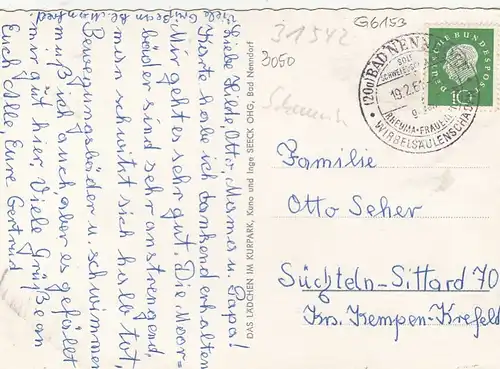 Viele Grüße an
Kl. Manfred.
Liebe Hilde, Otto, Mama u. Papa!
Karte habe ich dankend erhalten
Mir geht es sehr gut. Die Moor-
bäder sind sehr anstrengend,
man schwitzt sich halb tot,
Bewegungsbäder u. schwimmen
muß ich auch, aber es gefällt
mir gut hier. Viele Grüße an
Euch Alle, Eure Gertrud
DAS LÄDCHEN IM KURPARK, Kuno und Inge SEECK OHG, Bad Nenndorf
31542
3050
G6153
(20a) BAD NENNDORF
GOLF
SCHWEFEL
19.2.6
RHEUMA · FRAUEN
WIRBELSÄULENSCHÄDEN
DEUTSCHE BUNDESPOST
10
Familie
Otto Seher
Süchteln-Sittard 70
Krs. Kempen-Krefeld